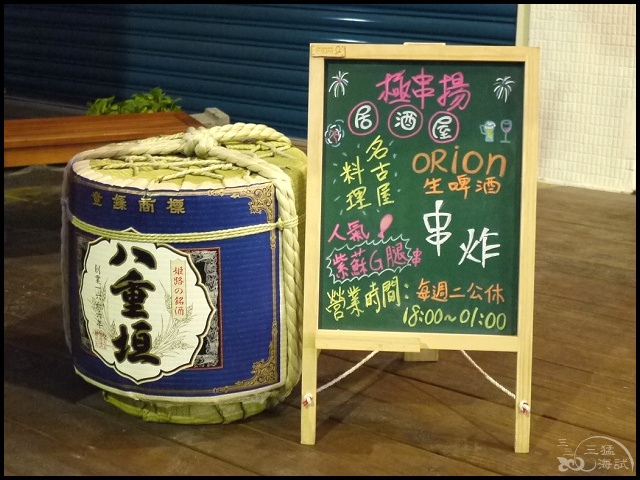 極串揚
居酒屋
名古屋
料理
ORION
生啤酒
串炸
人氣!
紫蘇G腿串
營業時間：每週二公休
18:00~01:00
登録商標
八重垣
姫路の銘酒
三猛
海試